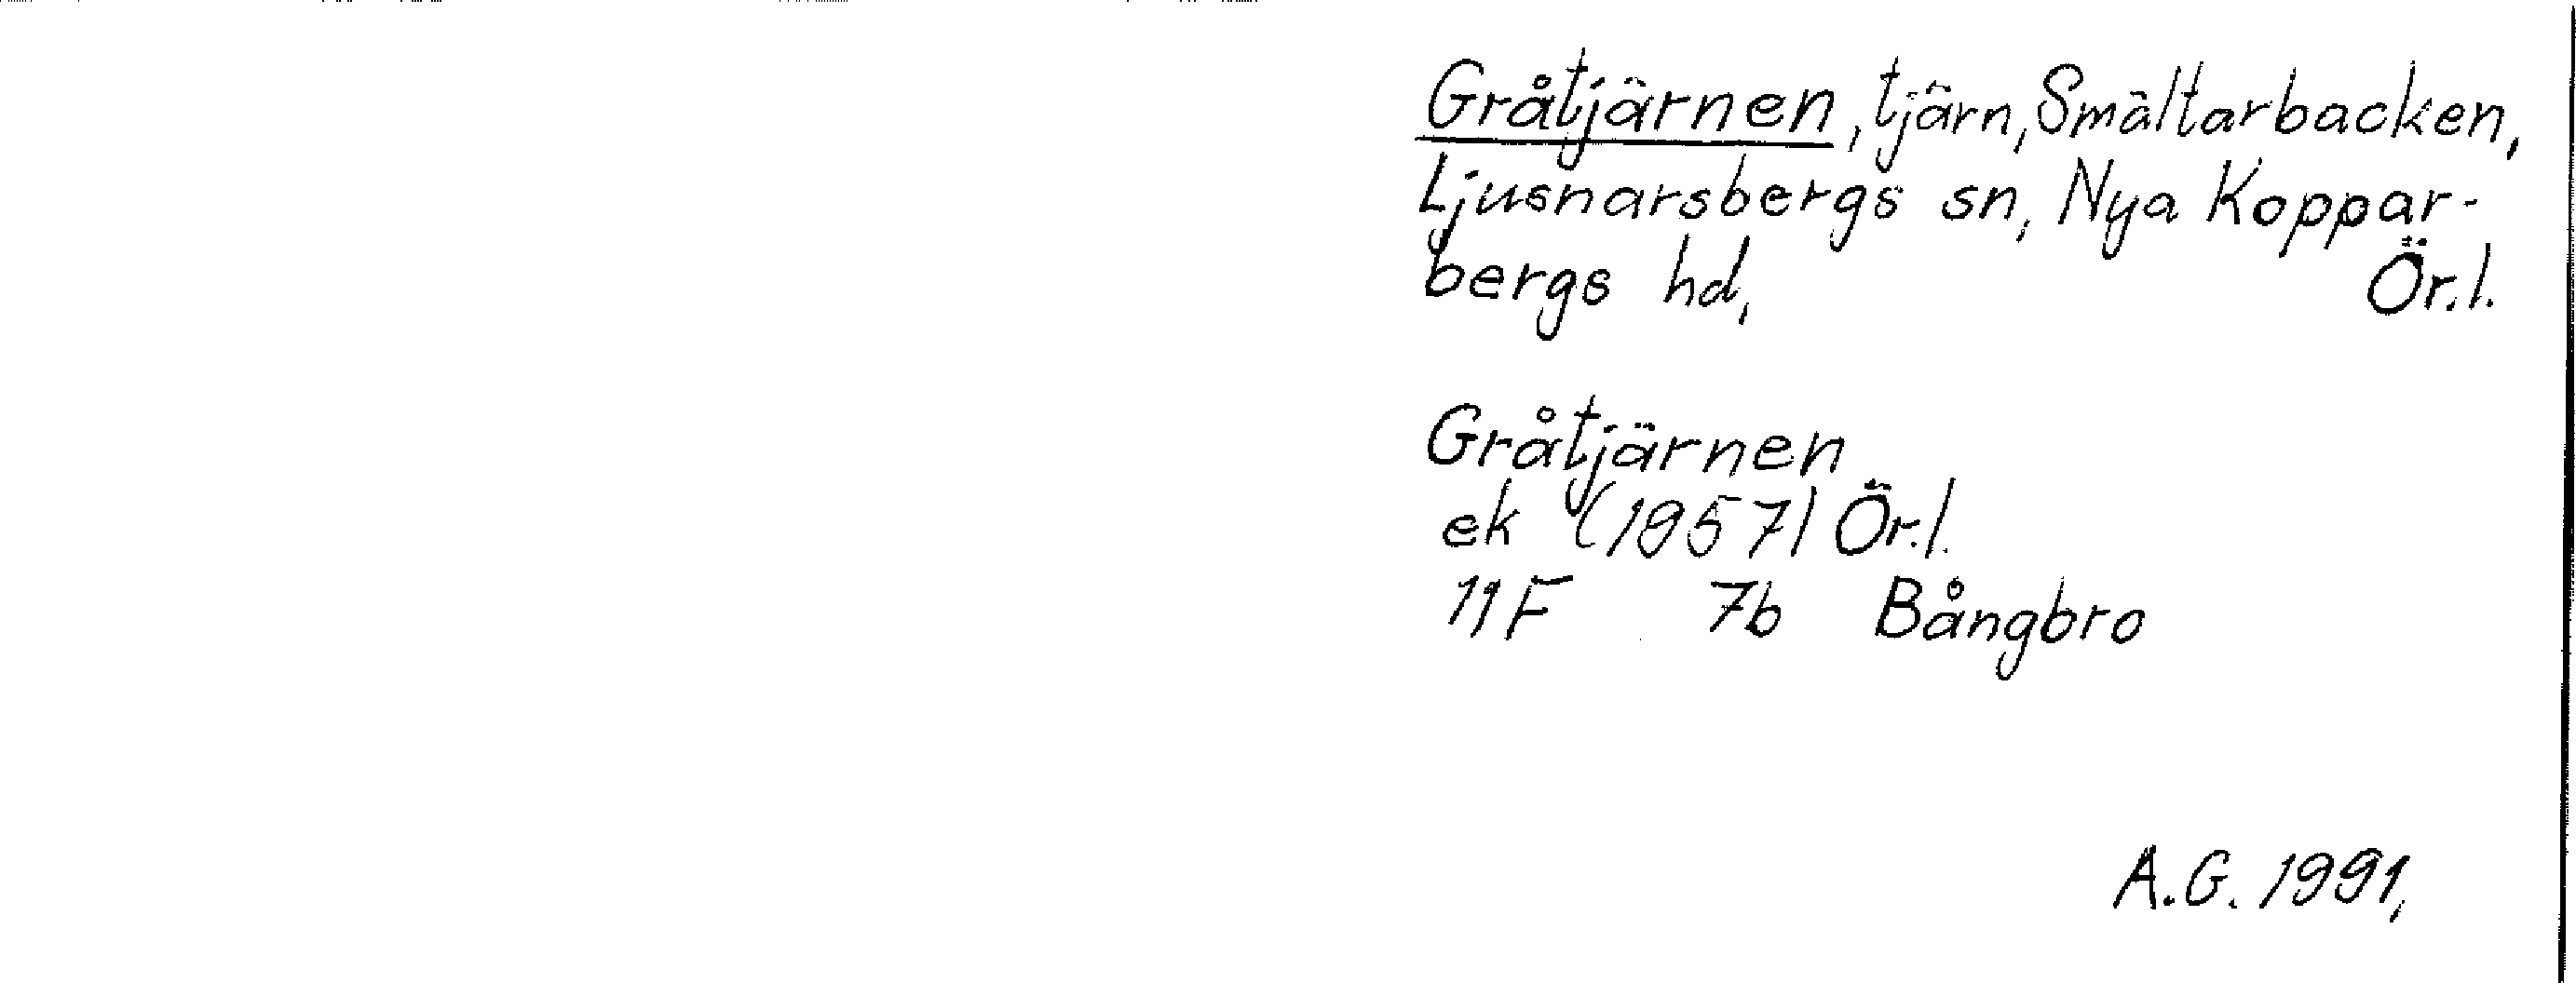 Gråtjärnen, tjärn, Smältarbacken,
Ljusnarsbergs sn, Nya Koppar-
bergs hd, Ör.l.
Gråtjärnen
ek (1957) Ör.l.
11F 7b Bångbro
A.G. 1991,